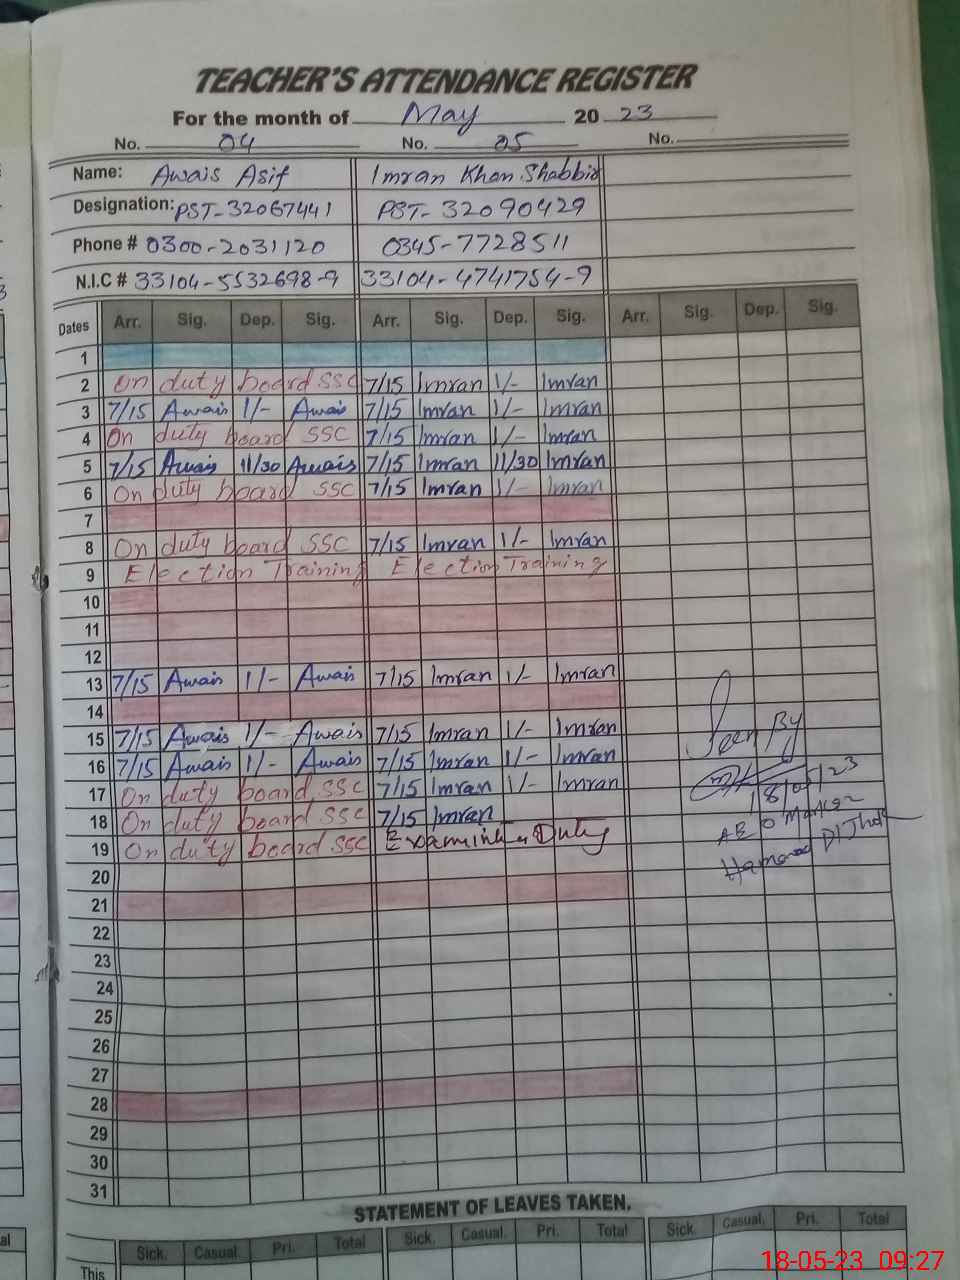 TEACHER'S ATTENDANCE REGISTER
For the month of May 20 23
No. 04 No. 05 No.
Name: Awais Asif Imran Khan Shabbir
Designation: PST-32067441 PST-32090429
Phone # 0300-2031120 0345-7728511
N.I.C # 33104-5532698-9 33104-4741754-9
Dates Arr. Sig. Dep. Sig. Arr. Sig. Dep. Sig. Arr. Sig. Dep. Sig.
1
2 On duty board SSC 7/15 Imran 1/- Imran
3 7/15 Awais 1/- Awais 7/15 Imran 1/- Imran
4 On duty board SSC 7/15 Imran 1/- Imran
5 7/15 Awais 11/30 Awais 7/15 Imran 11/30 Imran
6 On duty board SSC 7/15 Imran 1/- Imran
7
8 On duty board SSC 7/15 Imran 1/- Imran
9 Election Training Election Training
10
11
12
13 7/15 Awais 1/- Awais 7/15 Imran 1/- Imran
14
15 7/15 Awais 1/- Awais 7/15 Imran 1/- Imran Seen By
16 7/15 Awais 1/- Awais 7/15 Imran 1/- Imran
17 On duty board SSC 7/15 Imran 1/- Imran 18/05/23
18 On duty board SSC 7/15 Imran AEO
19 On duty board SSC Duty
20
21
22
23
24
25
26
27
28
29
30
31
STATEMENT OF LEAVES TAKEN.
Sick. Casual. Pri. Total Sick. Casual. Pri. Total Sick. Casual. Pri. Total
This
al
18-05-23 09:27